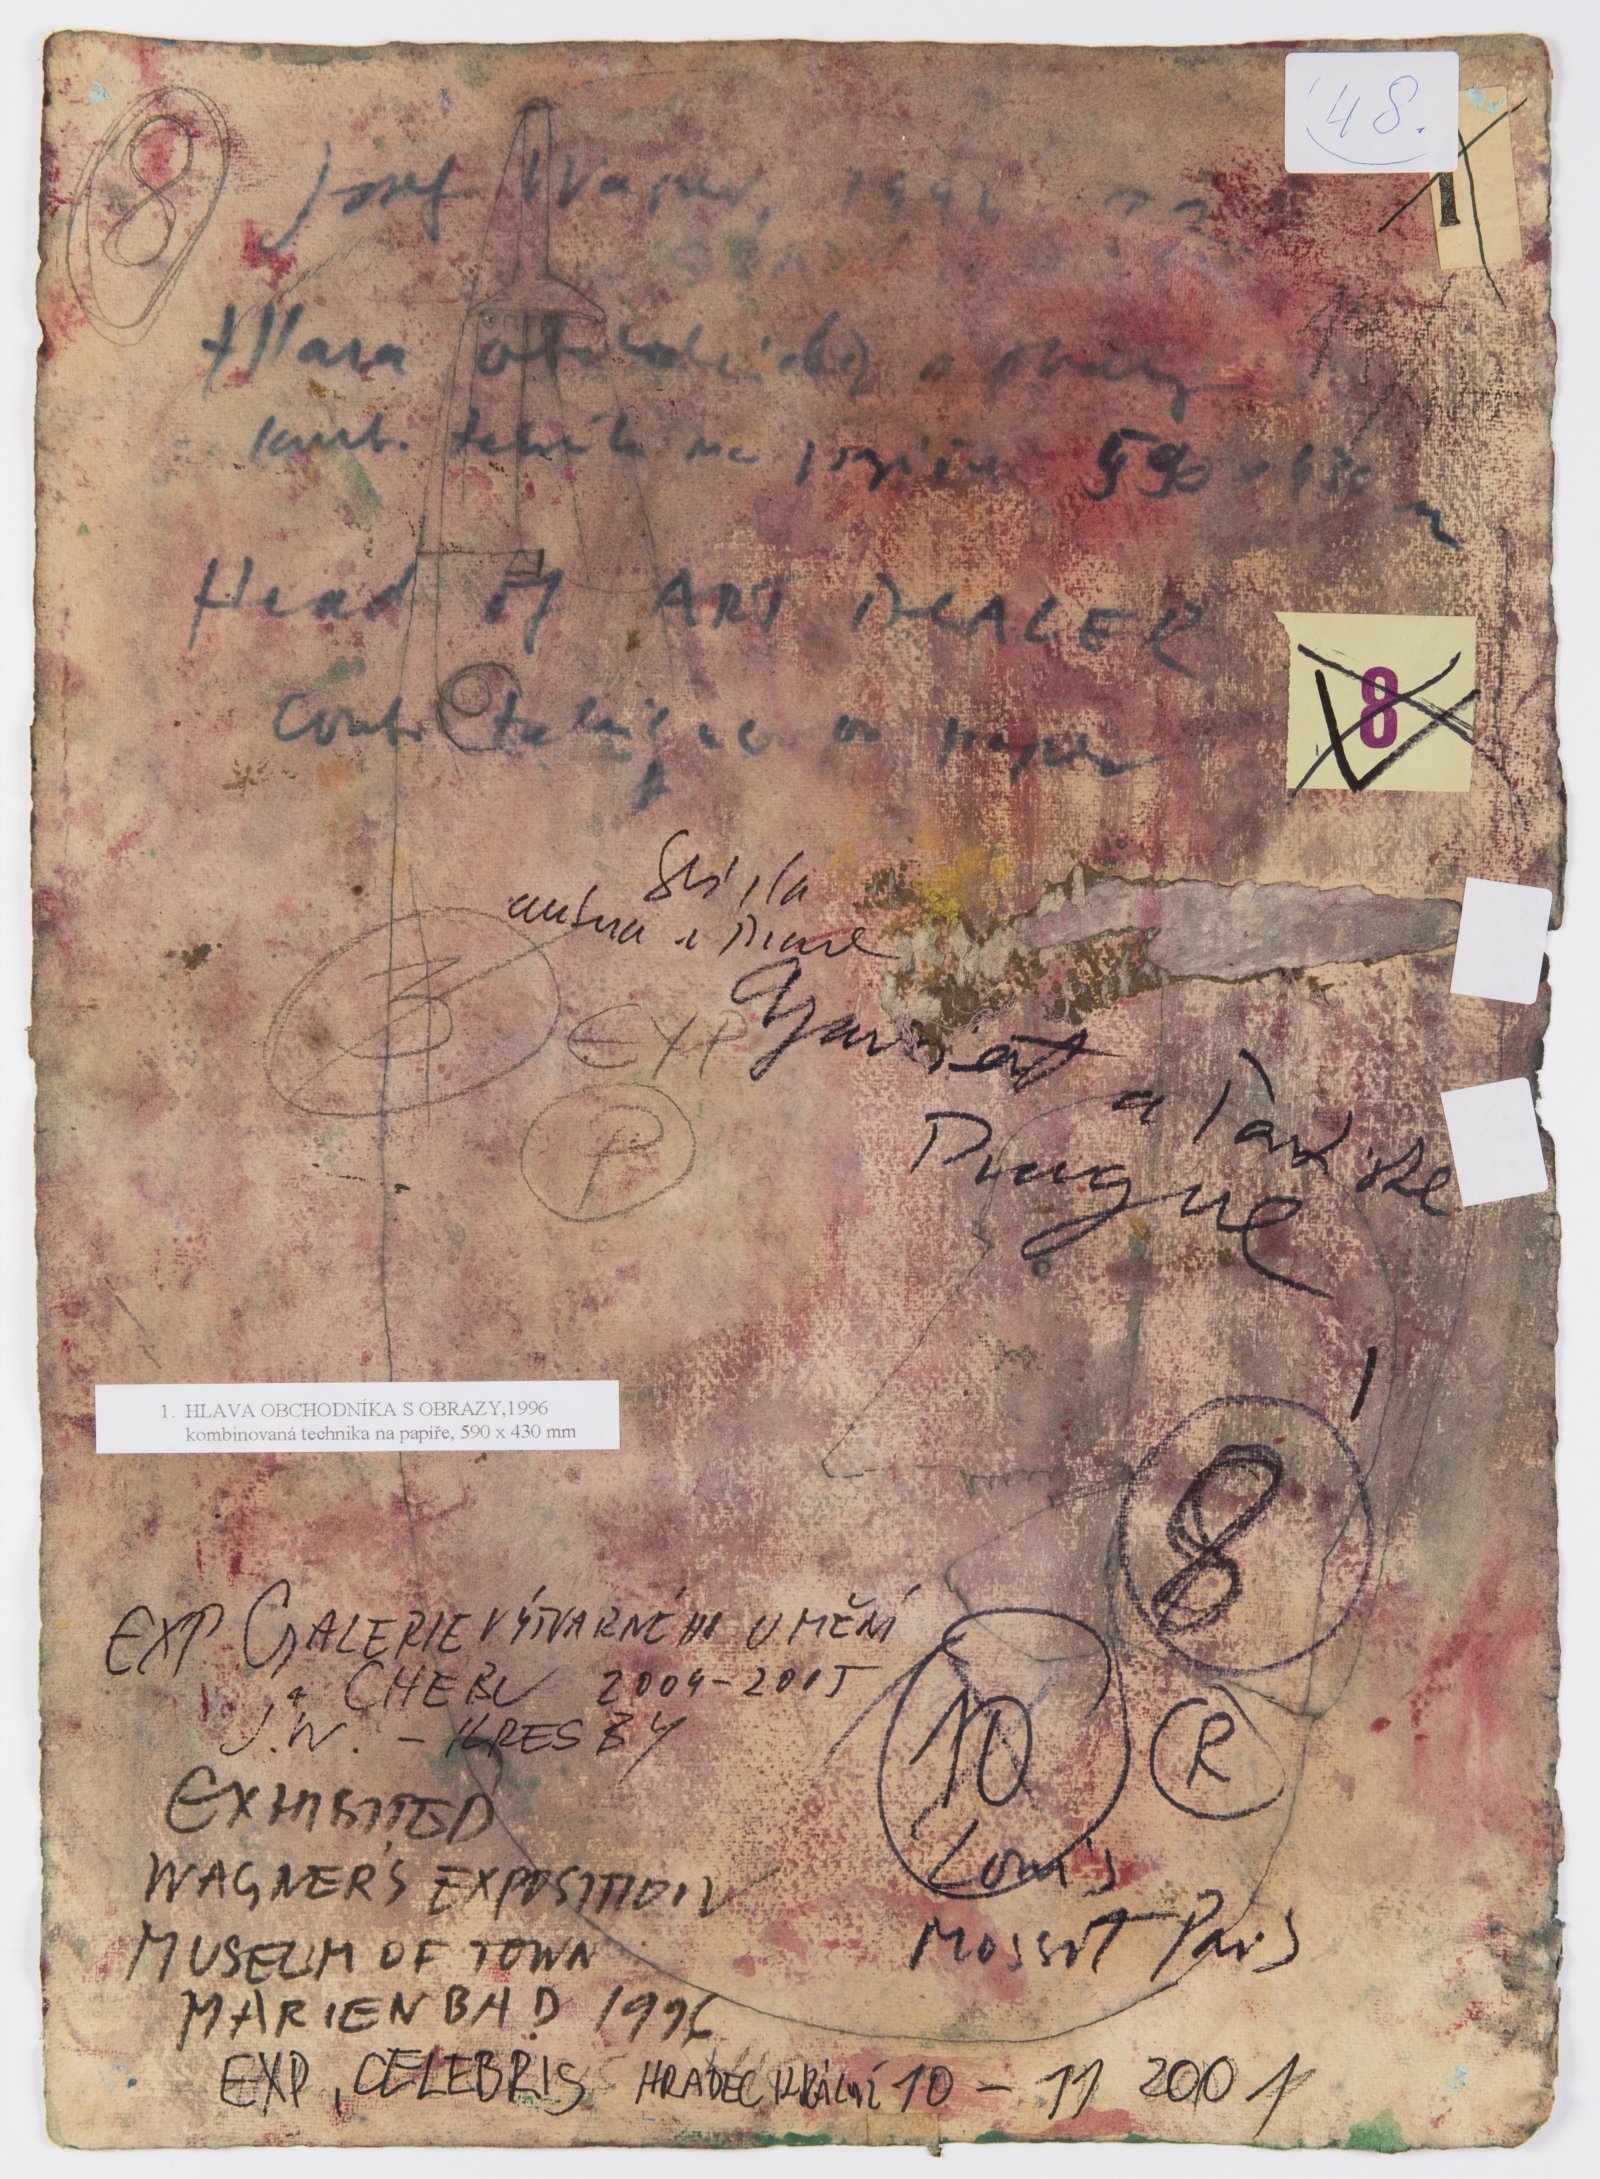 48.
8
1
Josef Wagner, 1996
Hlava obchodníka s obrazy
komb. technika na papíře 590 x 430
Head of ART DEALER
comb. technique on paper
8
autora z
3
EXP
P
a
Prague
1. HLAVA OBCHODNÍKA S OBRAZY,1996
kombinovaná technika na papíře, 590 x 430 mm
8
EXP. GALERIE VÝTVARNÉHO UMĚNÍ
CHEBU 2004-2005
J.W. - KRESBY
10
R
EXHIBITED
Louis
WAGNER'S EXPOSITION
Paris
MUSEUM OF TOWN
MARIENBAD 1996
EXP. CELEBRIS HRADEC KRÁLOVÉ 10 - 11 2001